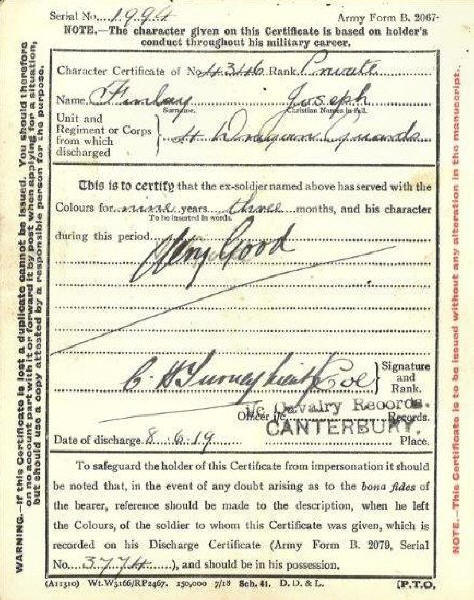 Serial No. 1994 Army Form B. 2067.
NOTE.—The character given on this Certificate is based on holder's
conduct throughout his military career.
Character Certificate of No. 4346 Rank Private
Name Finlay Joseph
Surname. Christian Names in full.
Unit and
Regiment or Corps
from which
discharged
4 Dragoon Guards
This is to certify that the ex-soldier named above has served with the
Colours for nine years three months, and his character
To be inserted in words.
during this period Very Good
C. H. Col
Signature
and
Rank.
Officer i/c Records.
i/c. Cavalry Records.
CANTERBURY.
Date of discharge 8.6.19. Place.
To safeguard the holder of this Certificate from impersonation it should
be noted that, in the event of any doubt arising as to the bona fides of
the bearer, reference should be made to the description, when he left
the Colours, of the soldier to whom this Certificate was given, which is
recorded on his Discharge Certificate (Army Form B. 2079, Serial
No. 3774), and should be in his possession.
(A11310) Wt.W5166/RP2467. 250,000 7/18 Sch. 41. D. D. & L. [P.T.O.
WARNING.—If this Certificate is lost a duplicate cannot be issued. You should therefore
on no account part with it or forward it by post when applying for a situation,
but should use a copy attested by a responsible person for the purpose.
NOTE.—This Certificate is to be issued without any alteration in the manuscript.